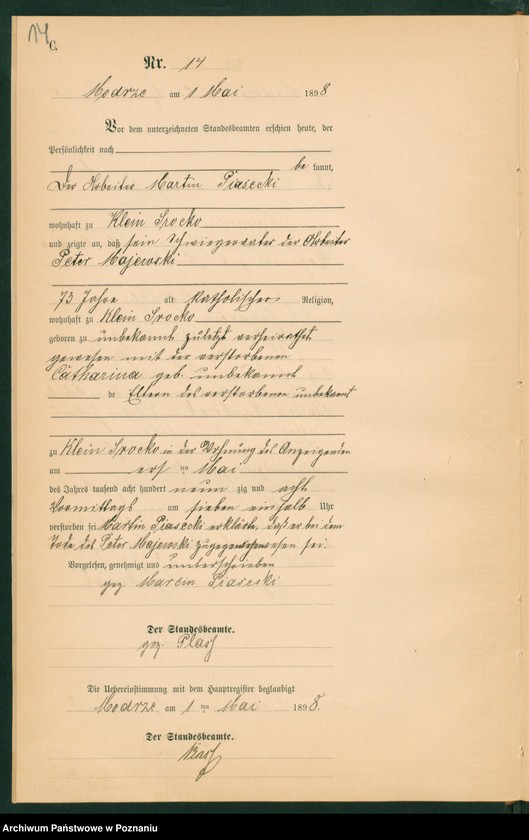 14
C.
Nr. 14
Modrze am 1 Mai 1898
Vor dem unterzeichneten Standesbeamten erschien heute, der
Persönlichkeit nach
be kannt,
Der Arbeiter Martin Piasecki
wohnhaft zu Klein Srocko
und zeigte an, daß sein Schwiegervater der Arbeiter
Peter Majewski
73 Jahre alt katholischer Religion,
wohnhaft zu Klein Srocko
geboren zu unbekannt zuletzt verheirathet
gewesen mit der verstorbenen
Catharina geb. unbekannt
de Eltern des verstorbenen unbekannt
zu Klein Srocko in der Wohnung des Anzeigenden
am ersten Mai
des Jahres tausend acht hundert neun zig und acht
Vormittags um sieben einhalb Uhr
verstorben sei Martin Piasecki erklärte, daß er bei dem
Tode des Peter Majewski zugegen gewesen sei.
Vorgelesen, genehmigt und unterschrieben
gez. Marcin Piasecki
Der Standesbeamte.
gez.
Die Uebereinstimmung mit dem Hauptregister beglaubigt
Modrze am 1 ten Mai 1898.
Der Standesbeamte.
Archiwum Państwowe w Poznaniu